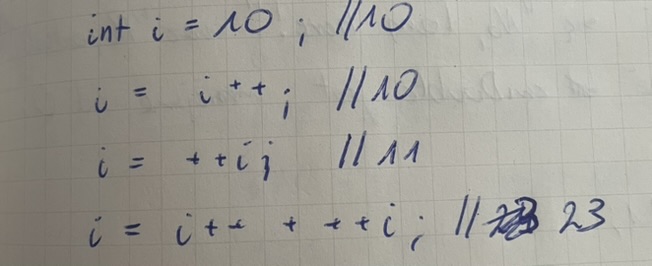 int i = 10; //10
i = i++; //10
i = ++i; //11
i = i++ + ++i; // 23